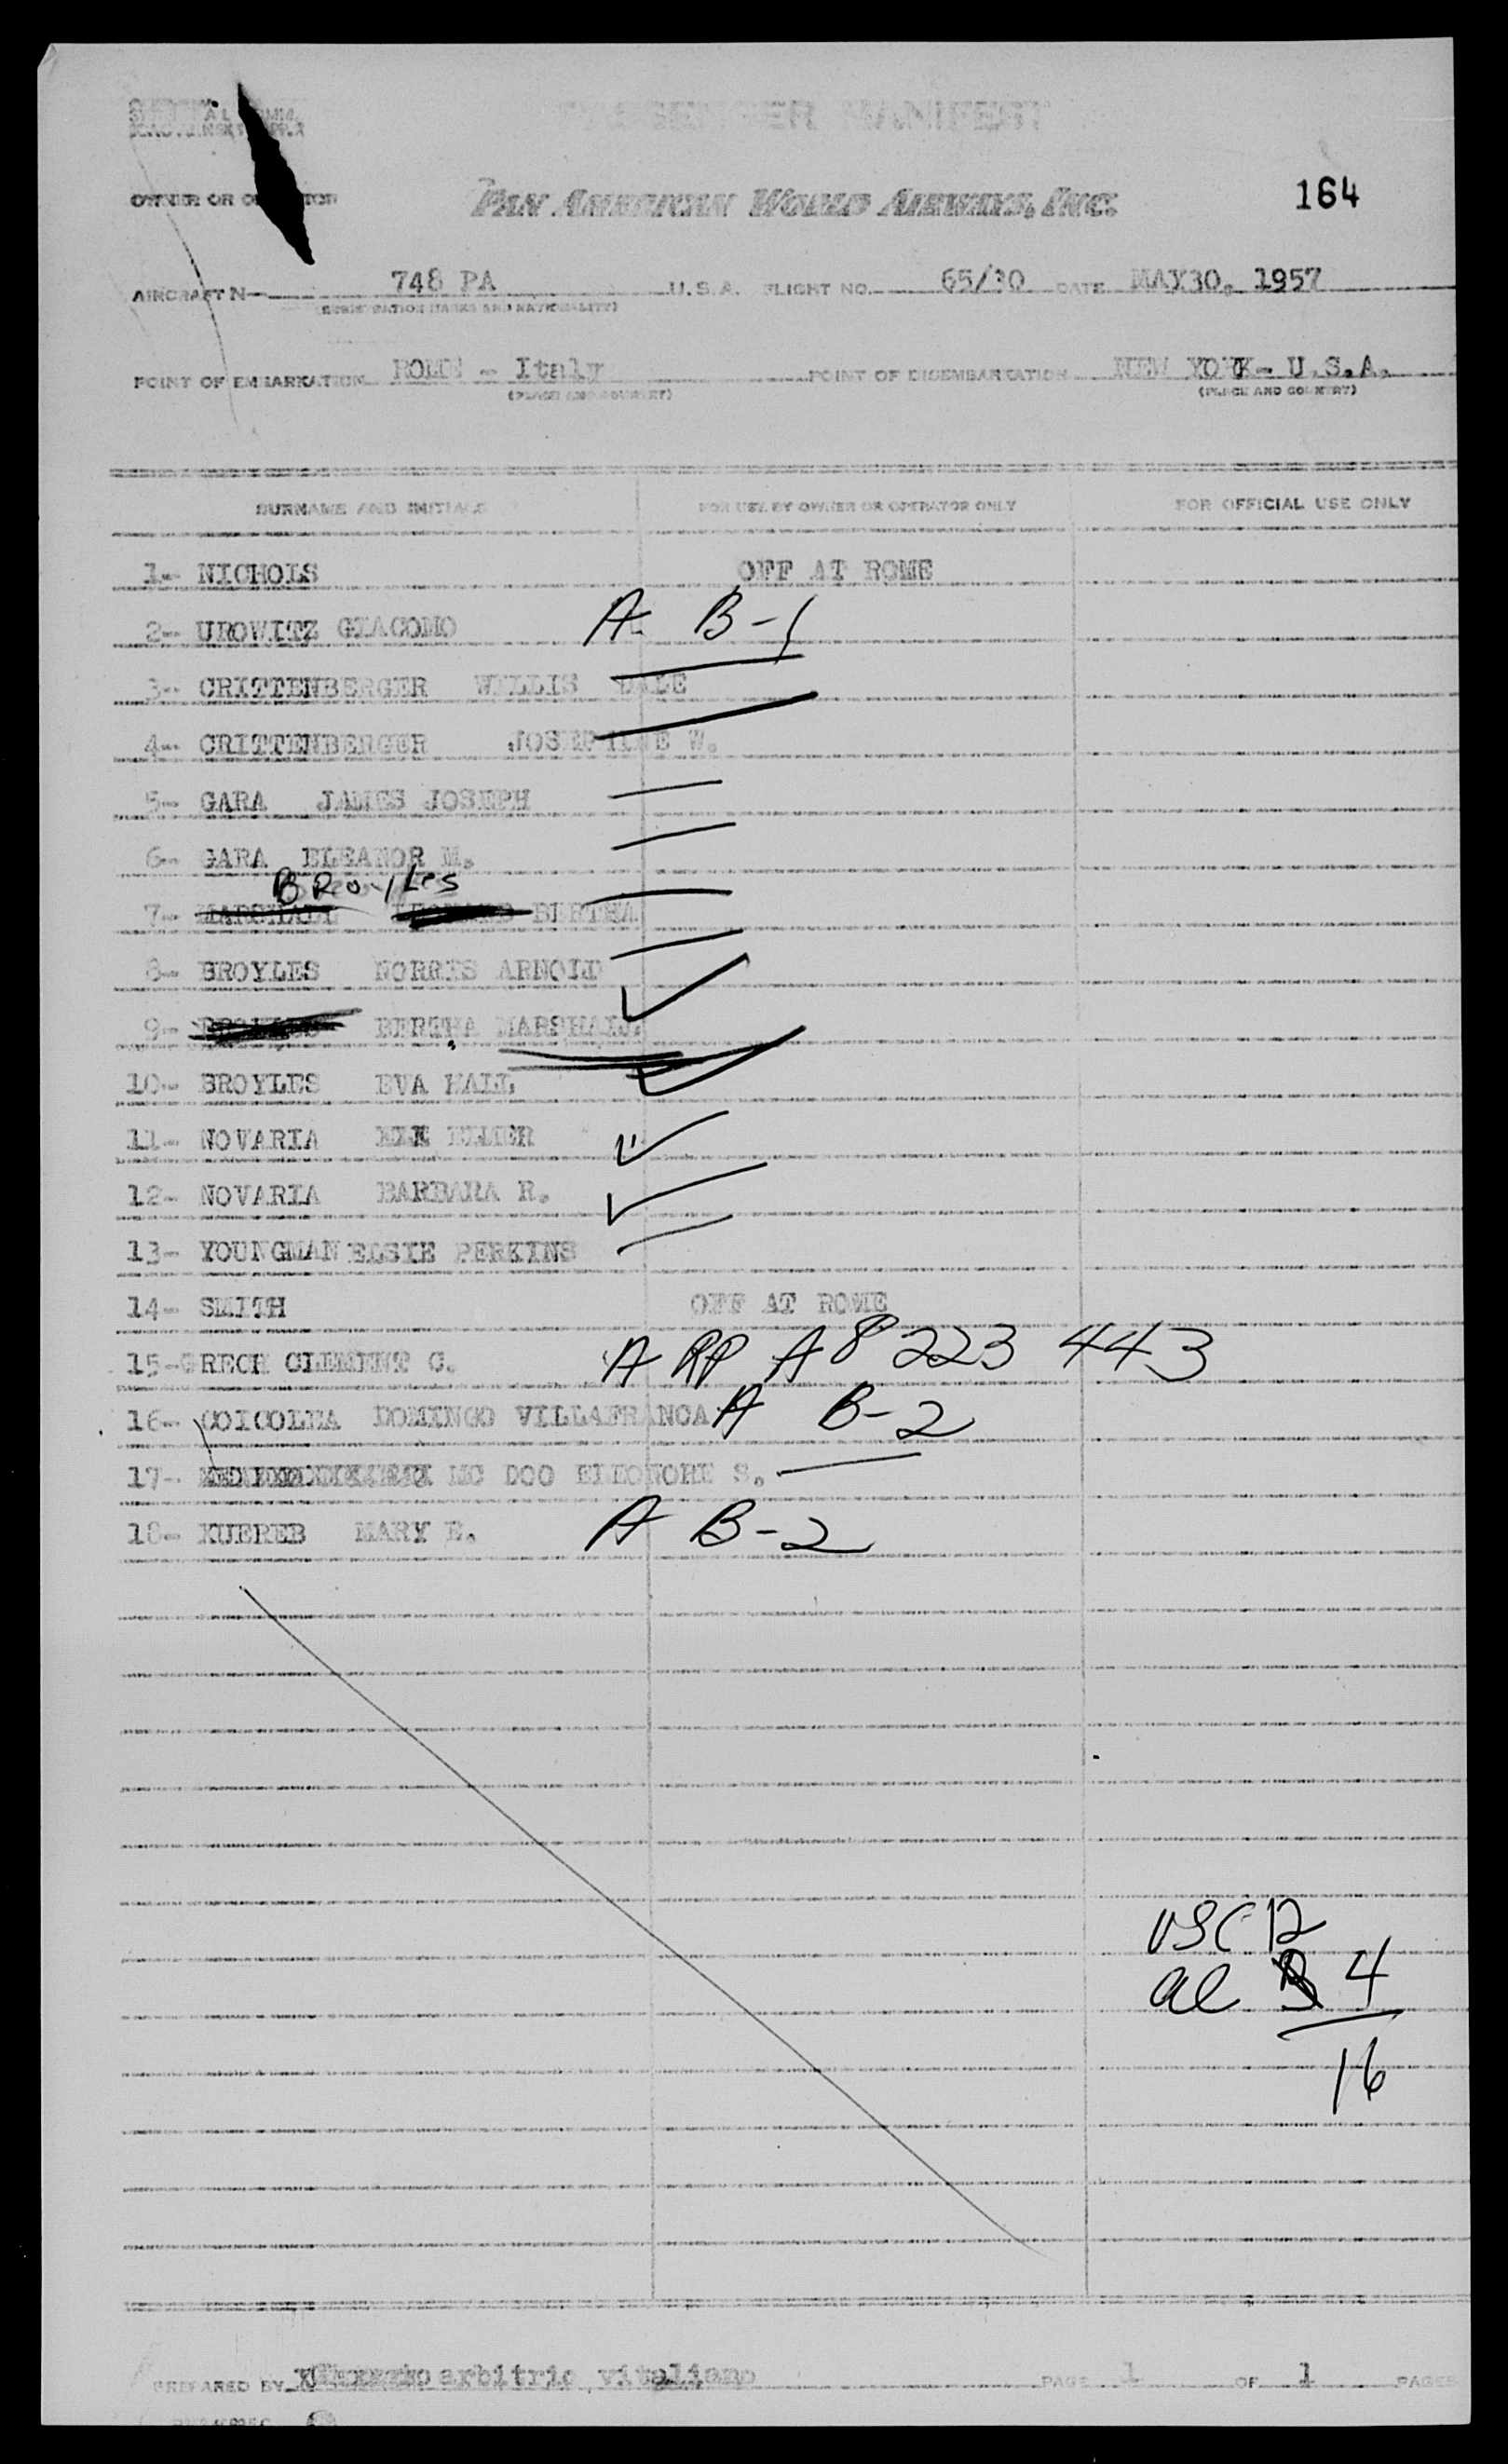 PASSENGER MANIFEST
OWNER OR OPERATOR
PAN AMERICAN WORLD AIRWAYS, INC.
164
AIRCRAFT N- 748 PA U.S.A. FLIGHT NO. 65/30 DATE MAY30, 1957
(REGISTRATION MARKS AND NATIONALITY)
POINT OF EMBARKATION ROME - Italy POINT OF DISEMBARKATION NEW YORK- U.S.A.
(PLACE AND COUNTRY) (PLACE AND COUNTRY)
SURNAME AND INITIALS FOR USE BY OWNER OR OPERATOR ONLY FOR OFFICIAL USE ONLY
1- NICHOLS OFF AT ROME
2- UROWITZ GIACOMO A B-1
3- CRITTENBERGER WILLIS DALE
4- CRITTENBERGER JOSEPHINE W.
5- GARA JAMES JOSEPH
6- GARA ELEANOR M.
BROYLES
7- MARSHALL BERTHA
8- BROYLES NORRIS ARNOLD
9- BERTHA MARSHALL
10- BROYLES EVA HALL
11- NOVARIA ELMER
12- NOVARIA BARBARA R.
13- YOUNGMAN ELSIE PERKINS
14- SMITH OFF AT ROME
15-GRECH CLEMENT C. A RP A8 223 443
16- COICOLEA DOMINGO VILLAFRANCA A B-2
17- MC DOO ELEONORE S.
18- XUEREB MARY E. A B-2
USC 12
al 4
16
PREPARED BY arbitrio vitaliano PAGE 1 OF 1 PAGES